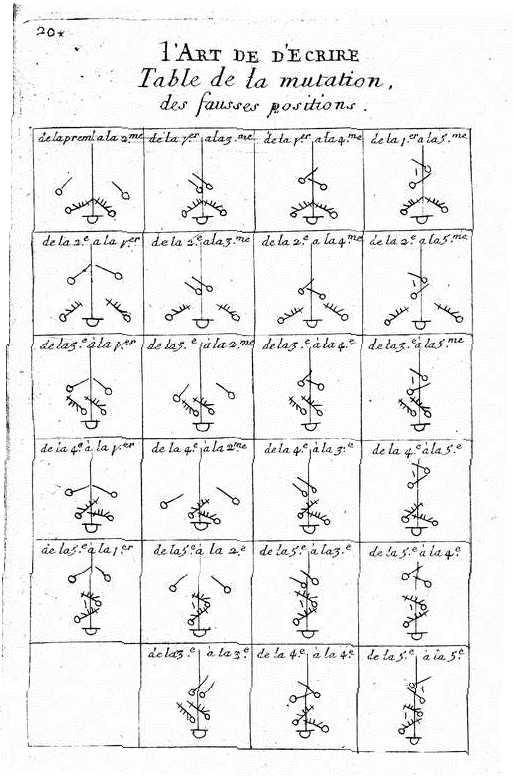 20*
l'ART DE D'ECRIRE
Table de la mutation,
des fausses positions.
de la premi a la 2.me de la 1.er a la 3.me de la 1.er a la 4.me de la 1.er a la 5.me
de la 2.e a la 1.er de la 2.e a la 3.me de la 2.e a la 4.me de la 2.e a la 5.me
de la 3.e à la 1.er de la 3.e à la 2.me de la 3.e à la 4.e de la 3.e à la 5.me
de la 4.e à la 1.er de la 4.e à la 2me de la 4.e à la 3.e de la 4.e à la 5.e
de la 5.e à la 1er de la 5.e à la 2.e de la 5.e à la 3.e de la 5.e à la 4.e
de la 3.e à la 3.e de la 4.e à la 4.e de la 5.e à la 5.e